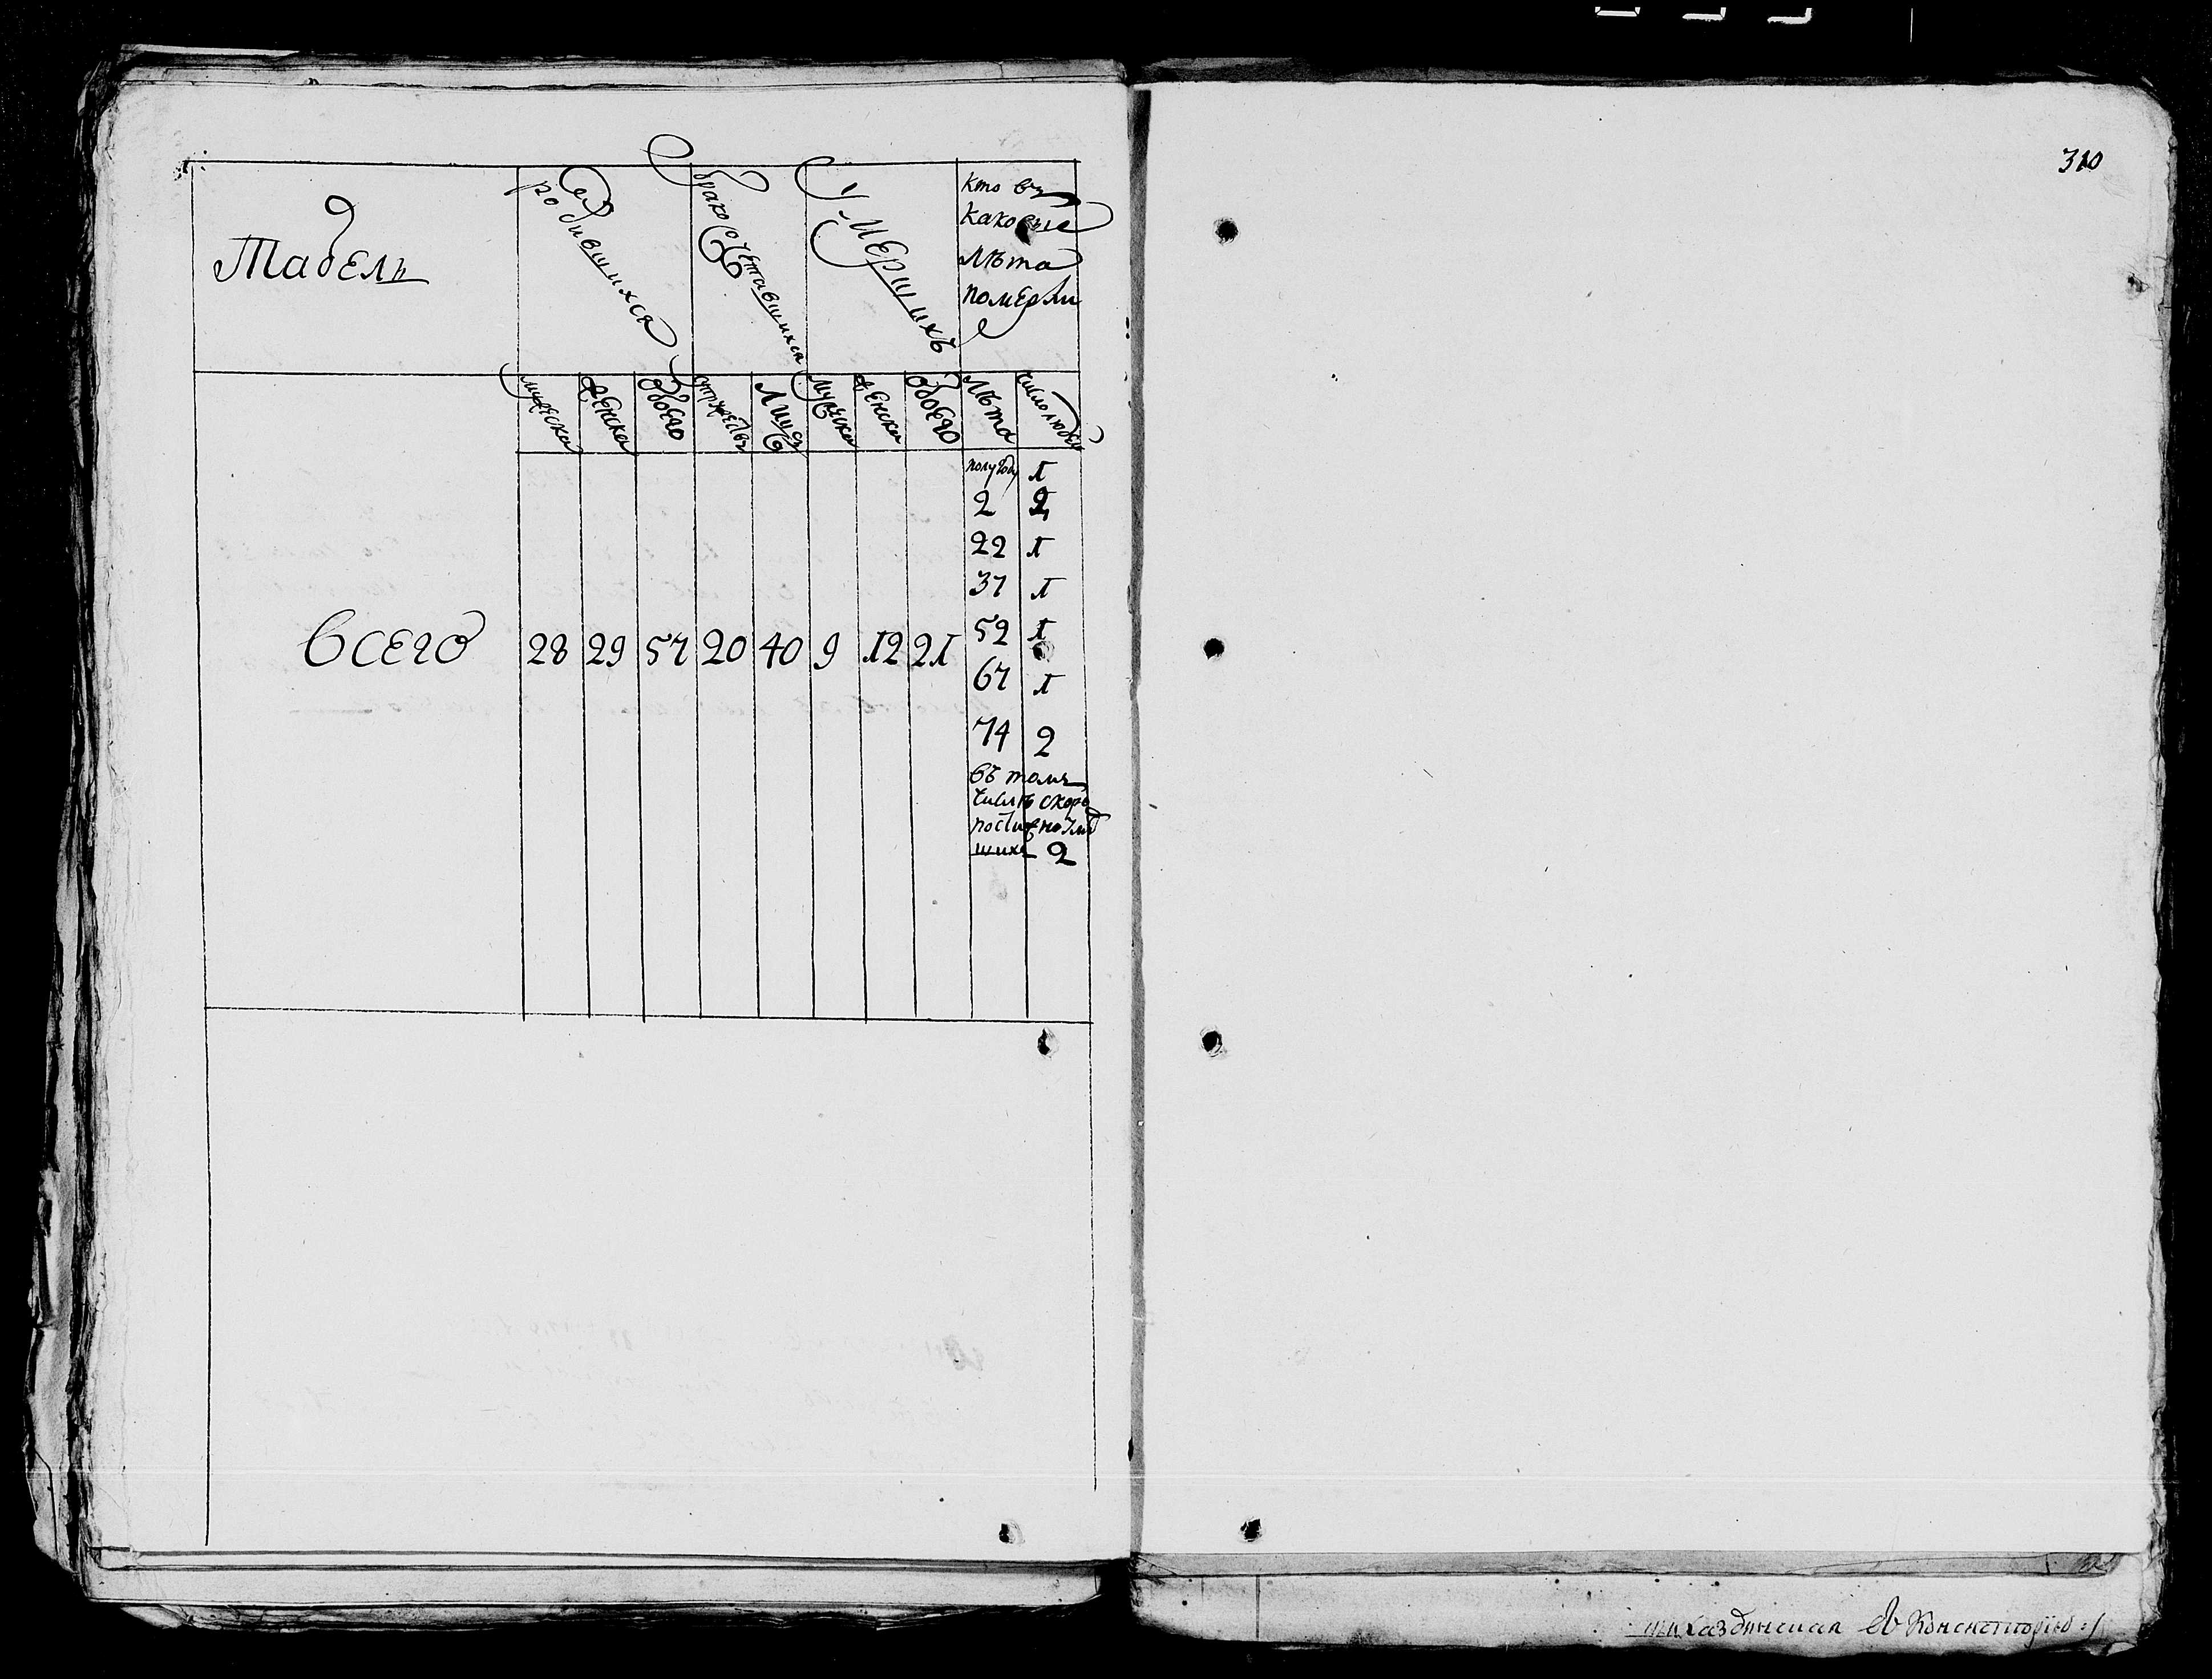 Табель
родившихся
бракосочетавшихся
умершихъ
кто въ
каковые
лѣта
померли
мужеска
женска
обоего
супружествъ
лицъ
мужеска
женска
обоего
лѣта
число людей
полугоду 1
2 2
22 1
37 1
52 1
Всего 28 29 57 20 40 9 12 21
67 1
74 2
въ томъ
числѣ скоро
постижно Ум
шихъ 2
310
Консисторію :/